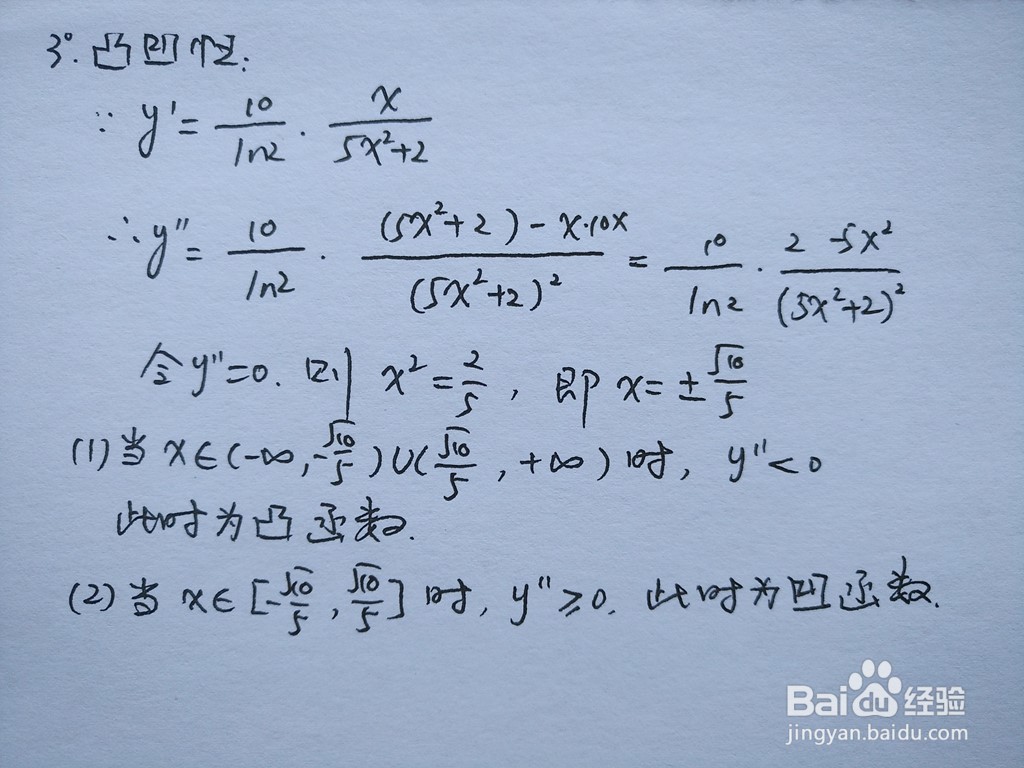 3°. 凸凹性:
∵ y' = 10/ln2 · x/(5x²+2)
∴ y'' = 10/ln2 · ((5x²+2) - x·10x)/(5x²+2)² = 10/ln2 · (2-5x²)/(5x²+2)²
令y''=0. 则 x² = 2/5, 即 x = ±√10/5
(1)当 x∈(-∞, -√10/5)∪(√10/5, +∞)时, y''<0
此时为凸函数.
(2)当 x∈[-√10/5, √10/5]时, y''≥0. 此时为凹函数.
Baidu经验
jingyan.baidu.com